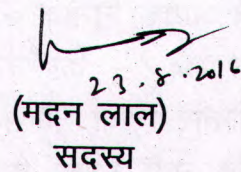 23.8.2016
(मदन लाल)
सदस्य